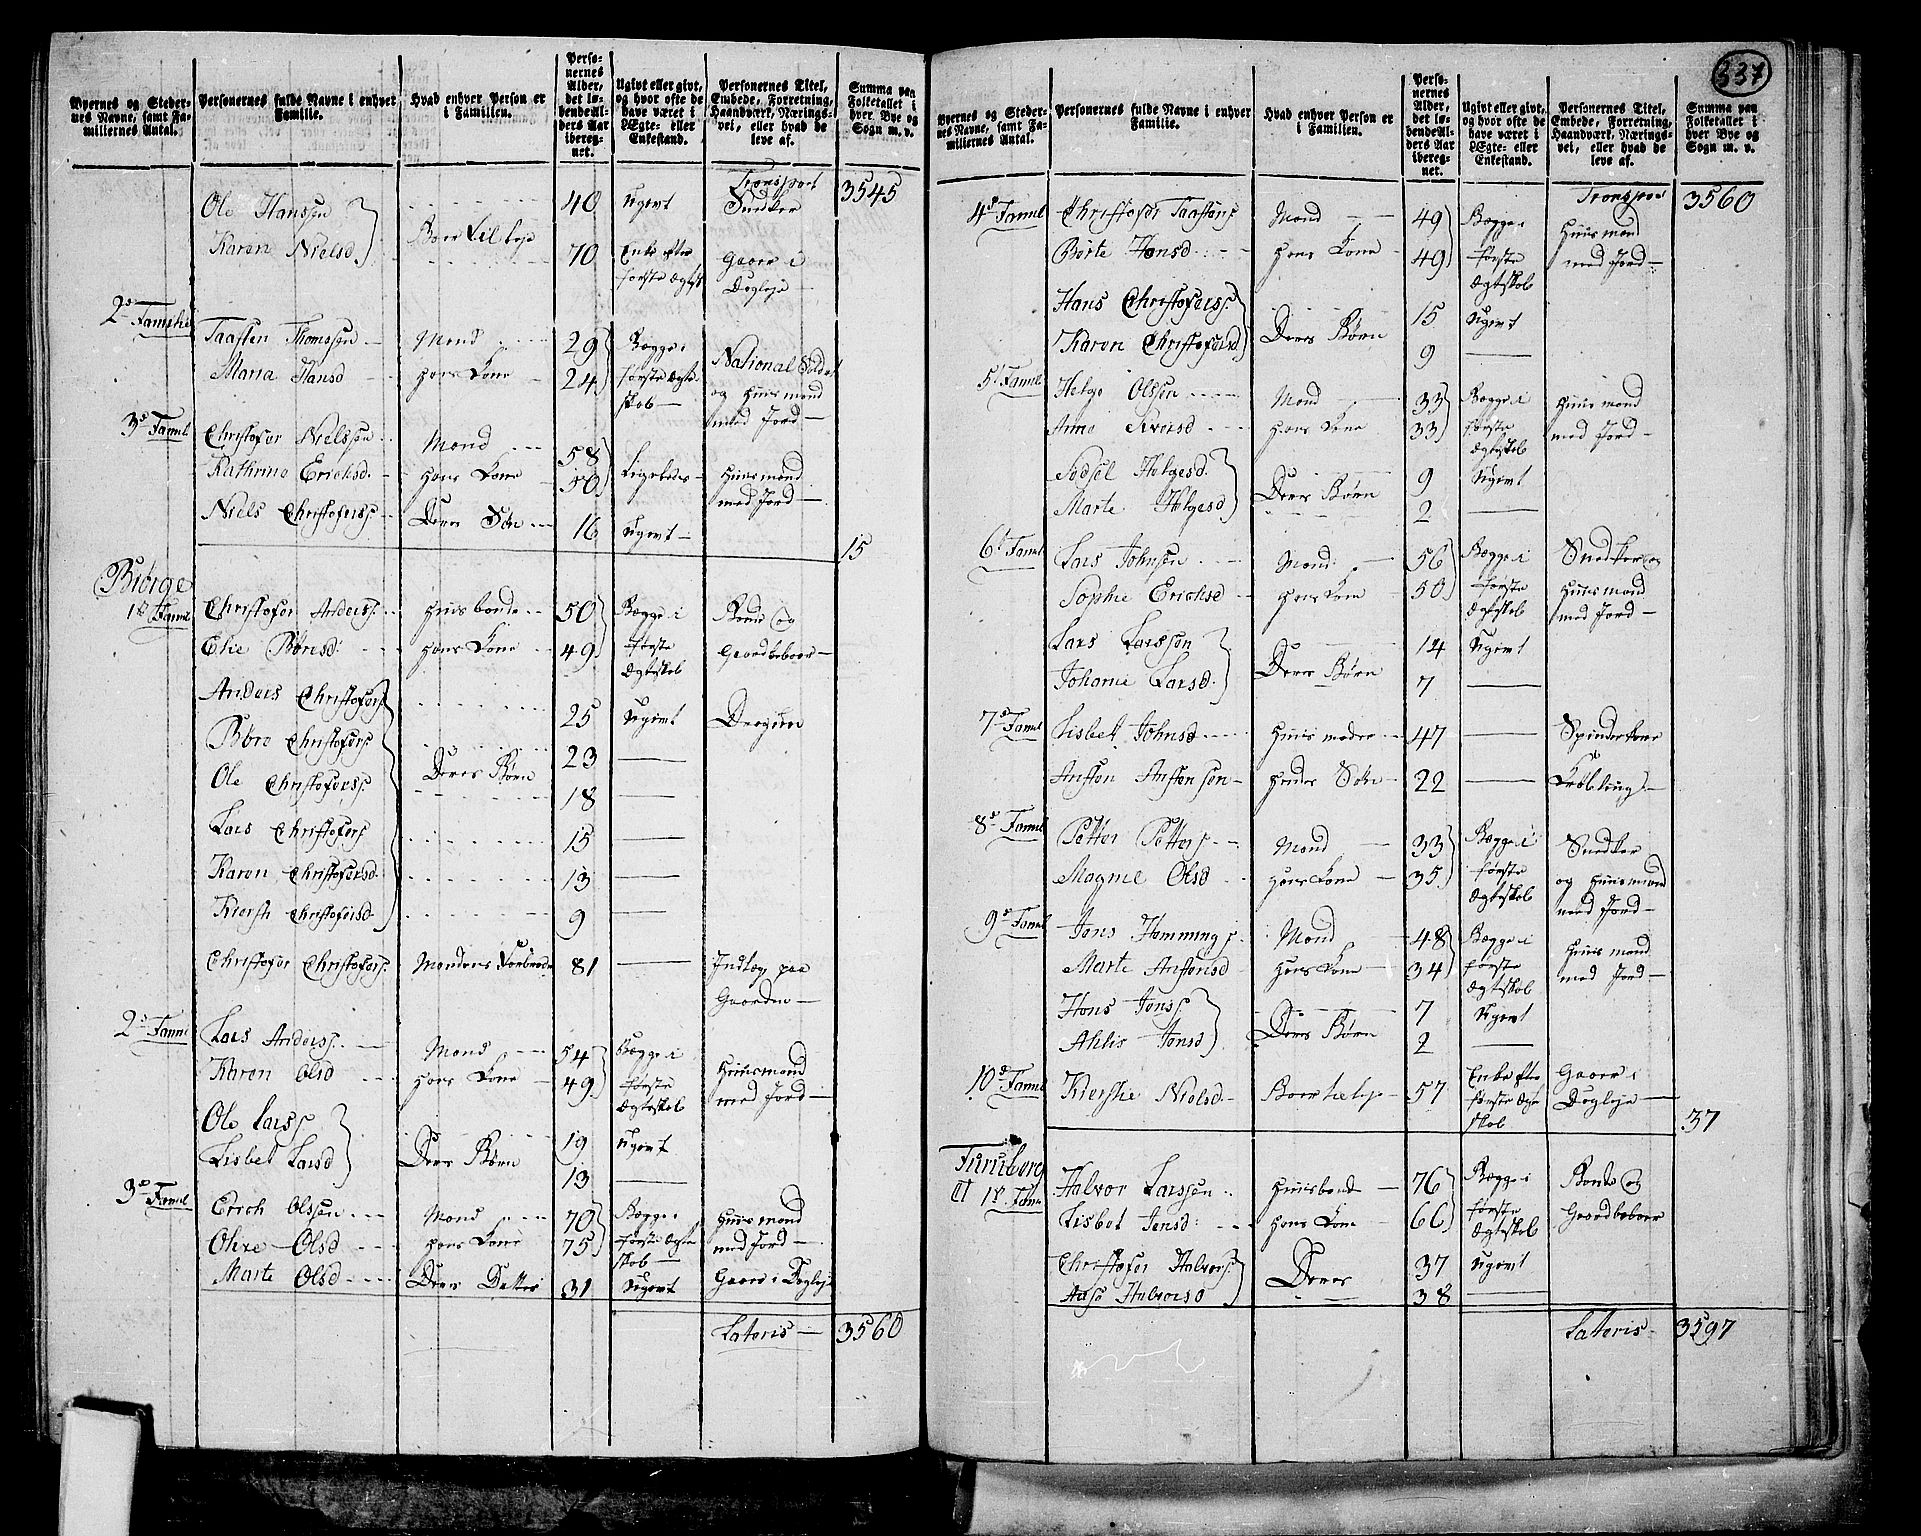 Byernes og Stedernes Navne, samt Familiernes Antal.
Personernes fulde Navne i enhver Familie.
Hvad enhver Person er i Familien.
Personernes Alder, det løbende Alders Aar iberegnet.
Ugivt eller givt, og hvor ofte de have været i Ægte- eller Enkestand.
Personernes Titel, Embede, Forretning, Haandværk, Næringsvei, eller hvad de leve af.
Summa paa Folketallet i hver Bye og Sogn m. v.
Transport 3545
Ole Hanssøn 40 Ugivt Snedker
Karen Nielsd. 70 Enke efter første Ægtsk Gaaer i Dagleje
2d Familie
Taasten Thomssøn Mand 29 Begge i første Ægteskab National Soldat og Huusmand med Jord
Maria Hansd hans Kone 24
3d Famil
Christofer Nielssøn Mand 58 Ligeledes Huusmand med Jord
Kathrine Erichsd. hans Kone 50
Niels Christoferss. Deres Søn 16 Ugivt
15
Bierge
1st Famil
Christofer Anderss. Huusbonde 50 Begge i første Ægtskab Bonde og Gaardbeboer
Elie Børresd: hans Kone 49
Anders Christofers. 25 Ugivt
Børe Christofers. 23
Ole Christoferss. Deres Børn 18
Lars Christofers. 15
Karen Christofersd. 13
Kiersti Christofersd. 9
Christofer Christofers. 81 Indtægt paa Gaarden
2d Famil
Lars Anderss. Mand 54 Begge i første Ægteskab Huusmand med Jord
Karen Olsd hans Kone 49
Ole Larss. 19 Ugivt
Lisbet Larsd Deres Børn 13
3d Famil
Erich Olssøn Mand 70 Begge i første Ægteskab Huusmand med Jord
Olsd hans Kone 75
Marte Olsd Deres Datter 31 Ugivt Gaaer i Dagleje
Lateris 3560
337
Byernes og Stedernes Navne, samt Familiernes Antal.
Personernes fulde Navne i enhver Familie.
Hvad enhver Person er i Familien.
Personernes Alder, det løbende Alders Aar iberegnet.
Ugivt eller givt, og hvor ofte de have været i Ægte- eller Enkestand.
Personernes Titel, Embede, Forretning, Haandværk, Næringsvei, eller hvad de leve af.
Summa paa Folketallet i hver Bye og Sogn m. v.
Transport 3560
4d Famil Christofer Taastens Mand 49 Begge i første Ægtskab Huusmand med Jord
Børte Hansd hans Kone 49
Hans Christoferss. 15 Ugivt
Karen Christofersd. Deres Børn 9
5t Famil Helge Olssøn Mand 33 Begge i første Ægtskab Huusmand med Jord
Anne Siversd hans Kone 33
Sidsel Helgesd. 9 Ugivt
Marte Helgesd Deres Børn 2
6t Famil Lars Johnsøn Mand 56 Begge i første Ægtskab Snedker og Huusmand med Jord
Sophie Erichsd hans Kone 50
Lars Larssøn 14 Ugivt
Johanne Larsd. Deres Børn 7
7d Famil Lisbet Johnsd Huusmoder 47 Spinderkone
Anston Anstonsøn hendes Søn 22
8d Famil Petter Petters. Mand 33 Begge i første Ægteskab Snedker og Huusmand med Jord
Magnil Olsd hans Kone 35
9d Famil Jens Hemmings. Mand 48 Begge i første Ægtskab Huusmand med Jord
Marte Anstonsd hans Kone 34
Hans Jenss. 7 Ugivt
Ahlis Jensd Deres Børn 2
10d Famil Kierstie Nielsd. 57 Enke efter første Ægteskab Gaaer i Dagleje
37
Furuberg
1st Fam Halvor Larssøn Huusbond 76 Begge i første Ægteskab Bonde og Gaardbeboer
Lisbet Jensd: hans Kone 66
Christofer Halvors. 37 Ugivt
Aase Halvorsd Deres 38
Lateris 3597